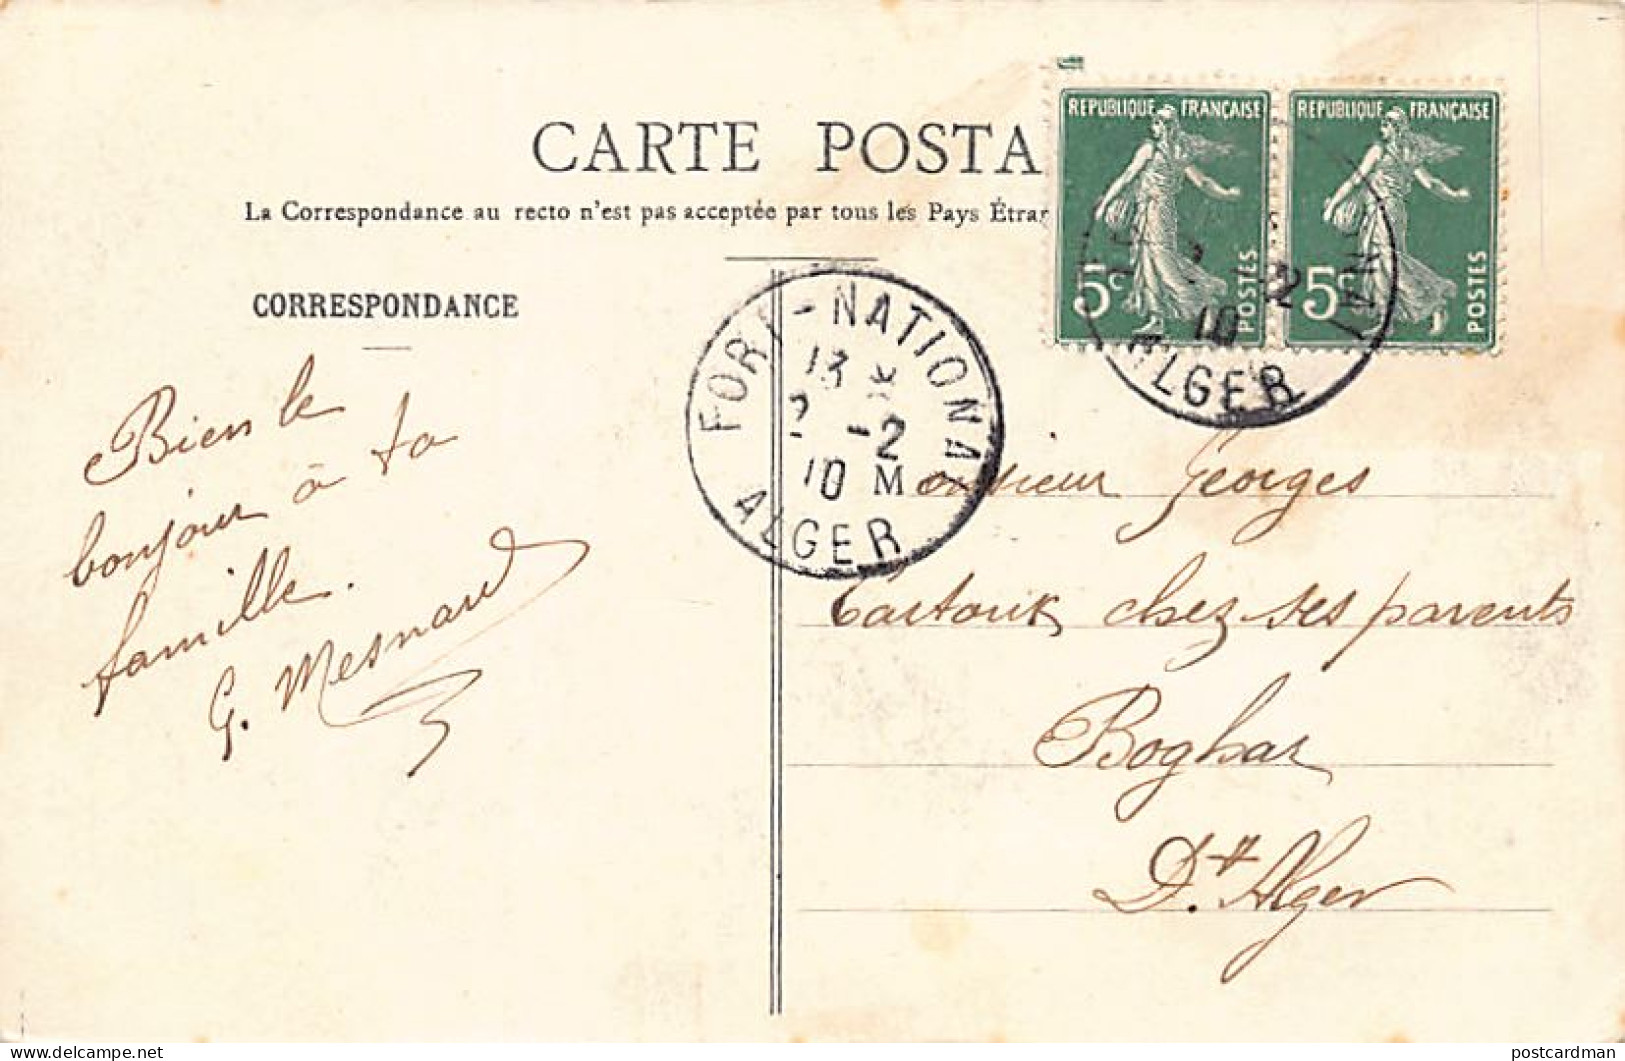 CARTE POSTA
La Correspondance au recto n'est pas acceptée par tous les Pays Étran
REPUBLIQUE FRANÇAISE
5c
POSTES
REPUBLIQUE FRANÇAISE
5c
POSTES
10
ALGER
CORRESPONDANCE
FORT-NATIONAL
13 *
2 -2
10
ALGER
Bien le
bonjour à ta
famille.
G. Mesnard
Monsieur Georges
chez ses parents
Boghar
Dt. Alger
postcardman
www.delcampe.net